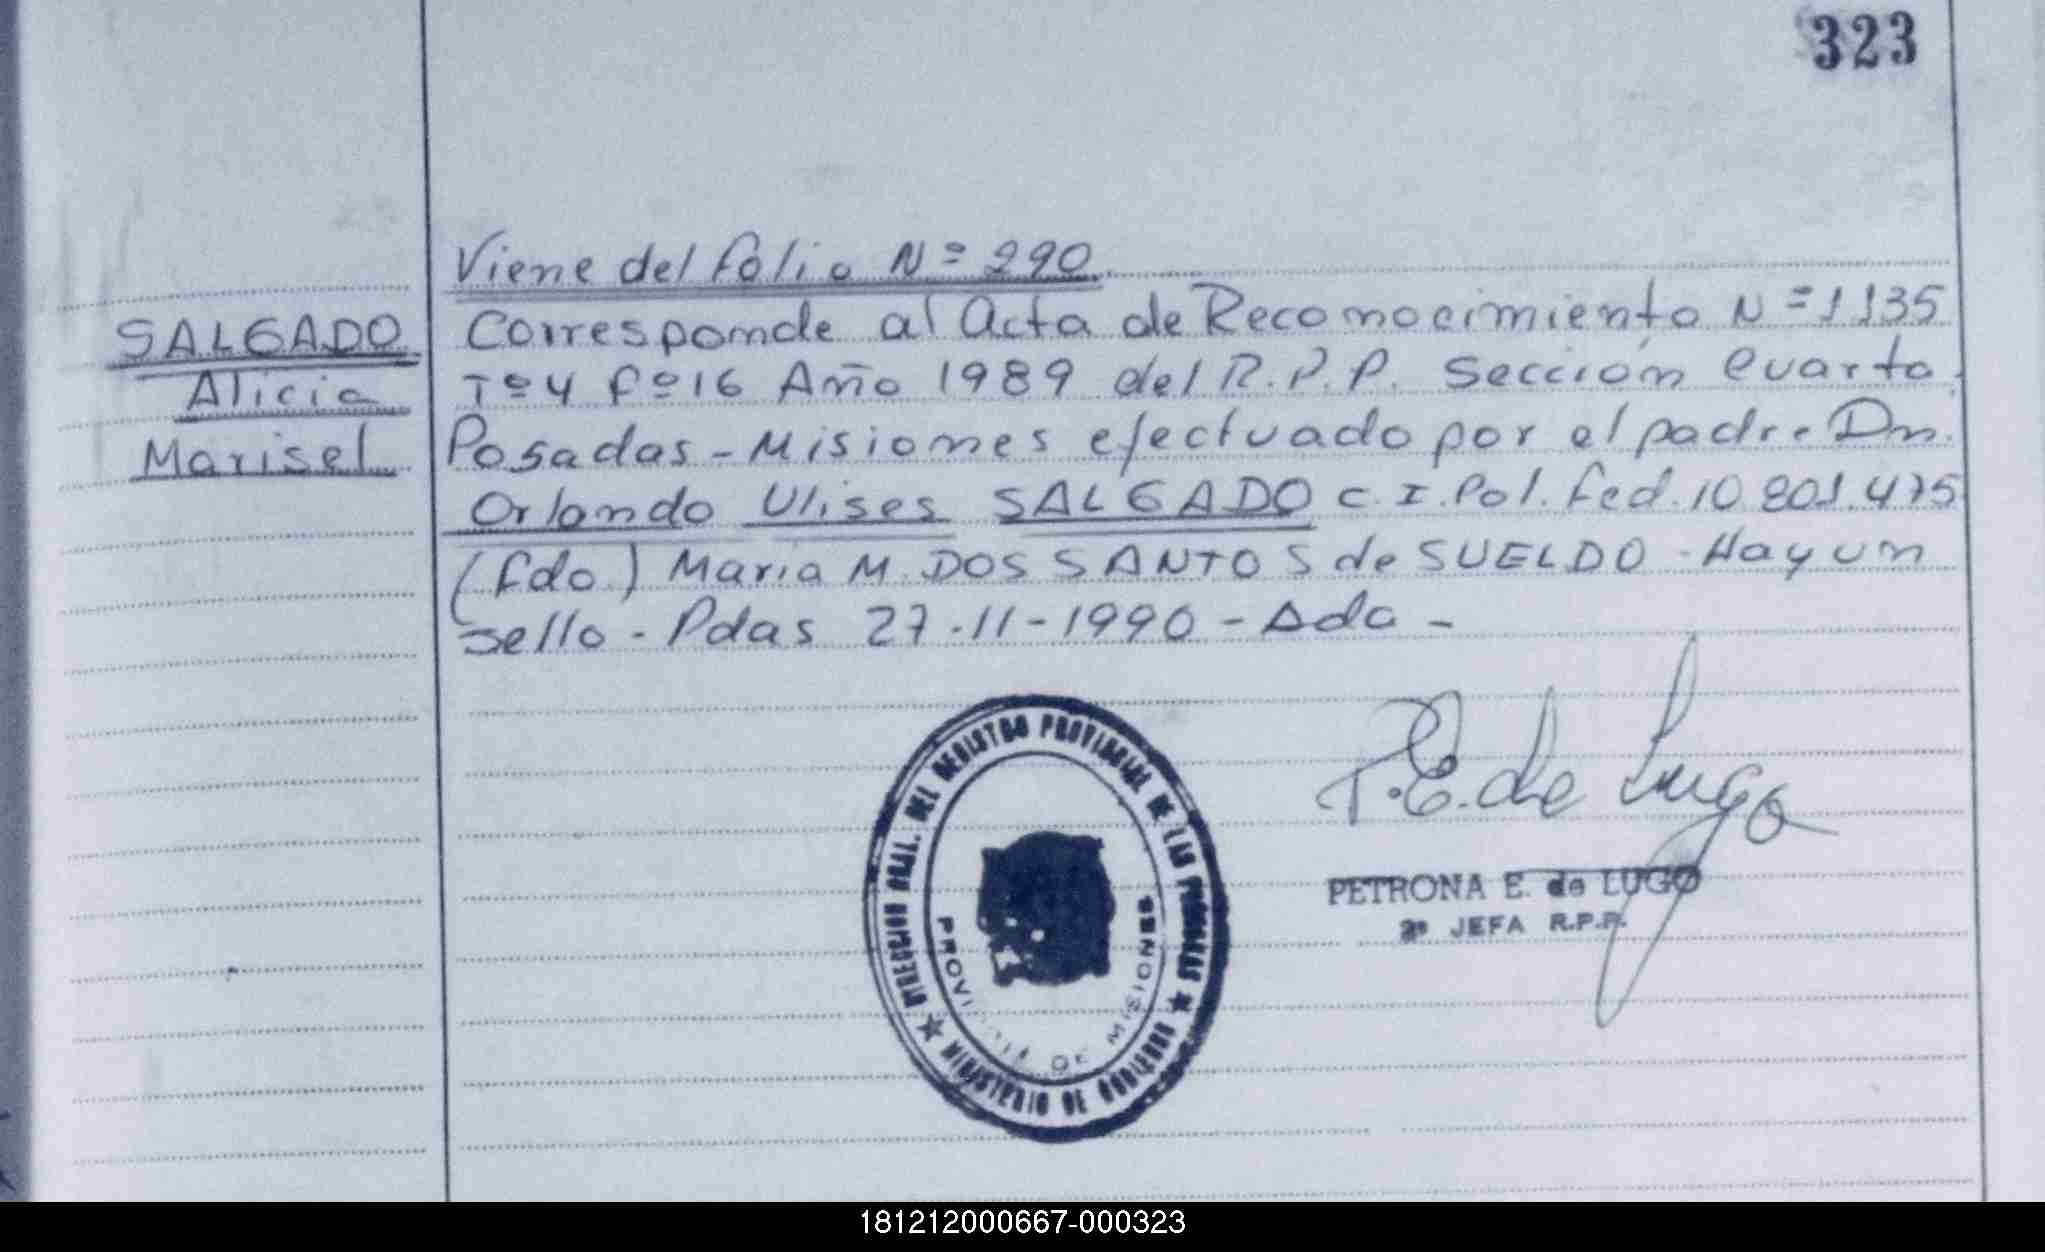 323
Viene del folio Nº 290
SALGADO
Alicia
Marisel
Corresponde al Acta de Reconocimiento Nº 1135
Tº 4 Fº 16 Año 1989 del R.P.P. Sección Cuarta
Posadas - Misiones efectuado por el padre Dn.
Orlando Ulises SALGADO C.I. Pol. Fed. 10.801.475
(Fdo) Maria M. DOS SANTOS de SUELDO - Hay un
sello - Pdas 27-11-1990 - Ada -
P.E. de Lugo
PETRONA E. de LUGO
2ª JEFA R.P.P.
DIRECCION GRAL. DEL REGISTRO PROVINCIAL DE LAS PERSONAS
MINISTERIO DE GOBIERNO
PROVINCIA DE MISIONES
181212000667-000323